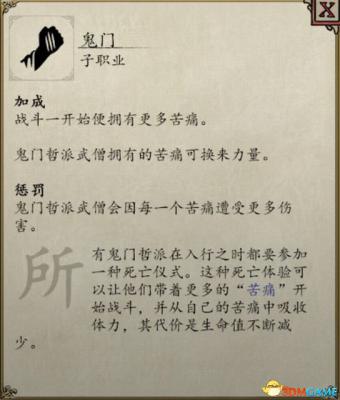 鬼门
子职业
加成
战斗一开始便拥有更多苦痛。
鬼门哲派武僧拥有的苦痛可换来力量。
惩罚
鬼门哲派武僧会因每一个苦痛遭受更多伤
害。
所
有鬼门哲派在入行之时都要参加
一种死亡仪式。这种死亡体验可
以让他们带着更多的“苦痛”开
始战斗，并从自己的苦痛中吸收
体力，其代价是生命值不断减
少。
X
3DMGAME